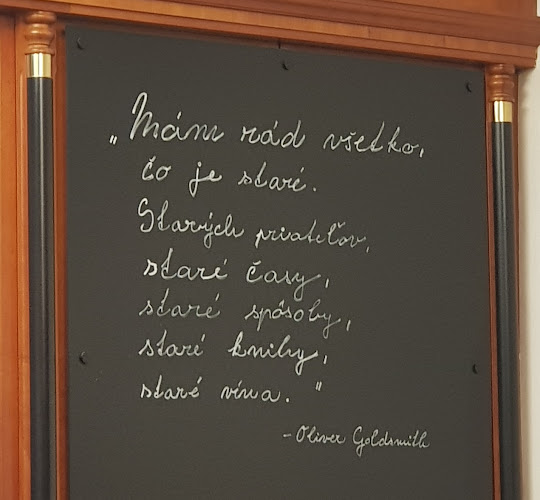 „Mám rád všetko,
čo je staré.
Starých priateľov,
staré časy,
staré spôsoby,
staré knihy,
staré vína."
-Oliver Goldsmith